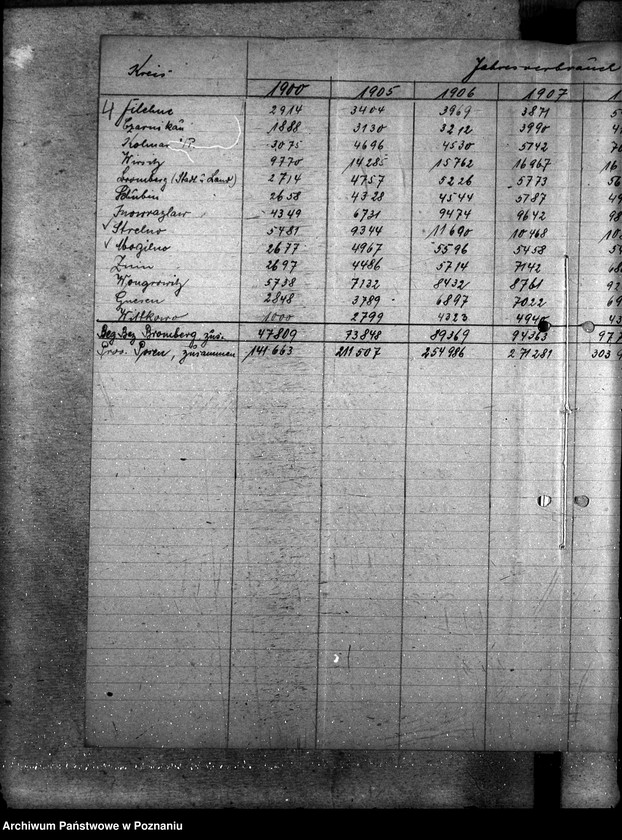 Kreis Jahresverbrauch
1900 1905 1906 1907 1
4 Filehne 2914 3404 3969 3871 5
Czarnikau 1888 3130 3212 3990 4
Kolmar i/P. 3075 4696 4530 5742 70
Wirsitz 9770 14285 15762 16967 16
Bromberg (Stadt u. Land) 2714 4757 5226 5773 56
Schubin 2658 4328 4544 5787 49
Inowrazlaw 4349 6731 9474 9642 98
√ Strelno 5481 9344 11690 10468 10
√ Mogilno 2677 4967 5596 5458 5
Znin 2697 4486 5714 7142 68
Wongrowitz 5738 7132 8432 8761 92
Gnesen 2848 3789 6897 7022 69
Witkowo 1000 2799 4323 4940 43
Reg. Bez. Bromberg, zus. 47809 73848 89369 94363 977
Prov. Posen, zusammen 141663 211507 254986 271281 303 9
Archiwum Państwowe w Poznaniu